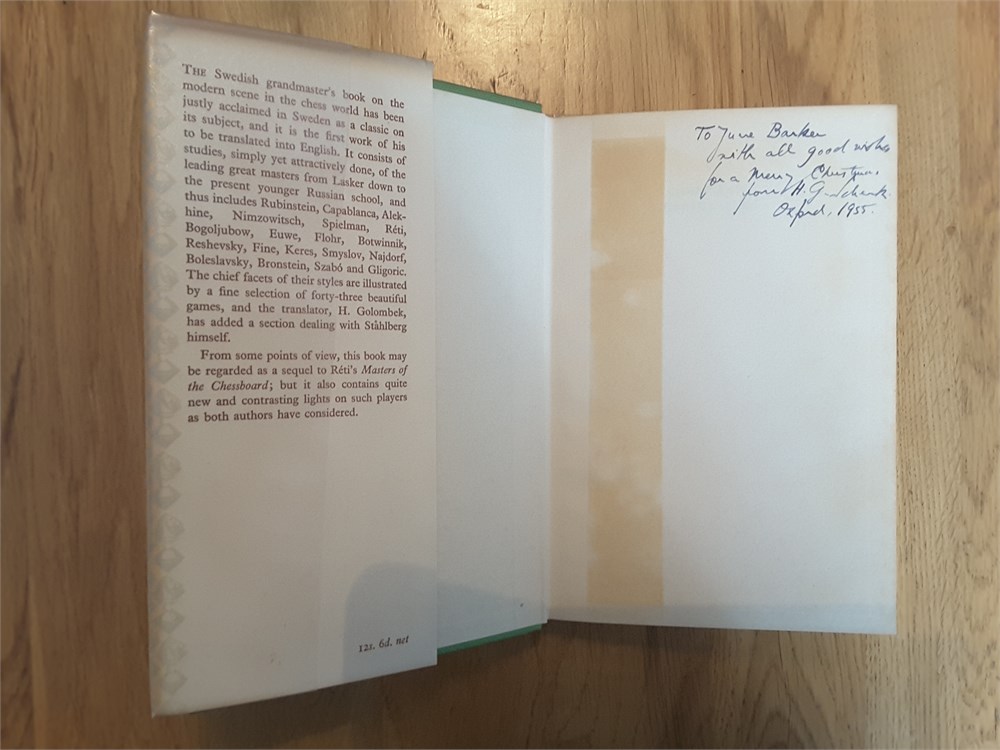 THE Swedish grandmaster's book on the
modern scene in the chess world has been
justly acclaimed in Sweden as a classic on
its subject, and it is the first work of his
to be translated into English. It consists of
studies, simply yet attractively done, of the
leading great masters from Lasker down to
the present younger Russian school, and
thus includes Rubinstein, Capablanca, Alek-
hine, Nimzowitsch, Spielman, Réti,
Bogoljubow, Euwe, Flohr, Botwinnik,
Reshevsky, Fine, Keres, Smyslov, Najdorf,
Boleslavsky, Bronstein, Szabó and Gligoric.
The chief facets of their styles are illustrated
by a fine selection of forty-three beautiful
games, and the translator, H. Golombek,
has added a section dealing with Ståhlberg
himself.
From some points of view, this book may
be regarded as a sequel to Réti's Masters of
the Chessboard; but it also contains quite
new and contrasting lights on such players
as both authors have considered.
12s. 6d. net
To June Barker
with all good wishes
for a Merry Christmas
from H. G.
Oxford, 1955.